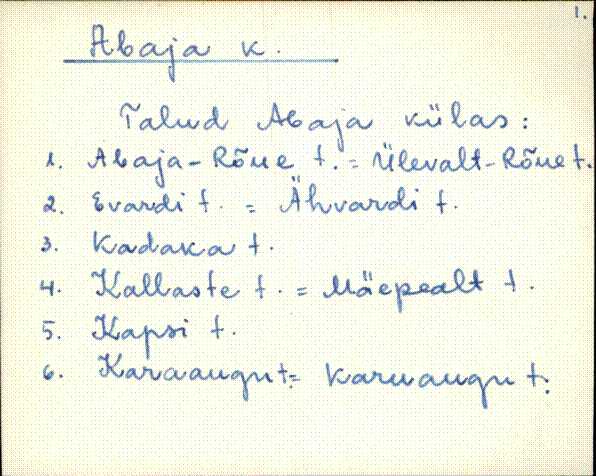 1.
Abaja k.
Talud Abaja külas:
1. Abaja-Rõue t. = Ülevalt-Rõue t.
2. Evardi t. = Ähvardi t.
3. Kadaka t.
4. Kallaste t. = Mäepealt t.
5. Kapsi t.
6. Karaaugu t. = Karuaugu t.